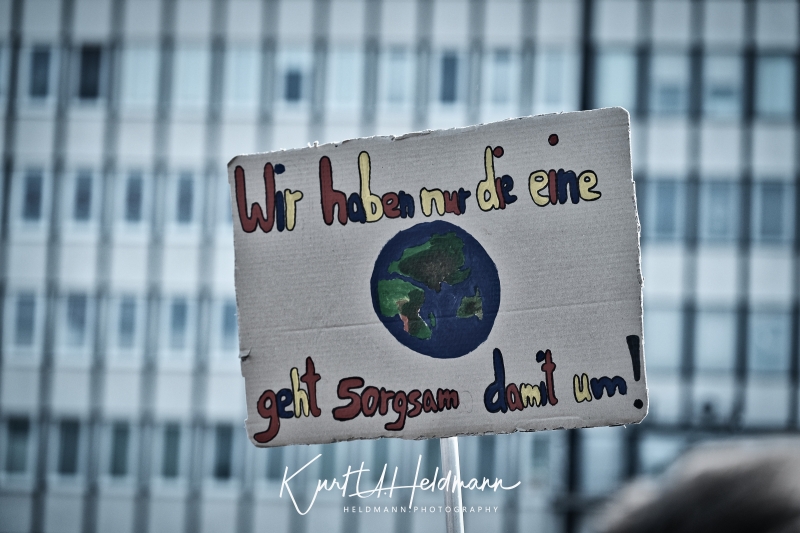 Wir haben nur die eine
geht sorgsam damit um!
Kurt A. Heldmann
HELDMANN.PHOTOGRAPHY